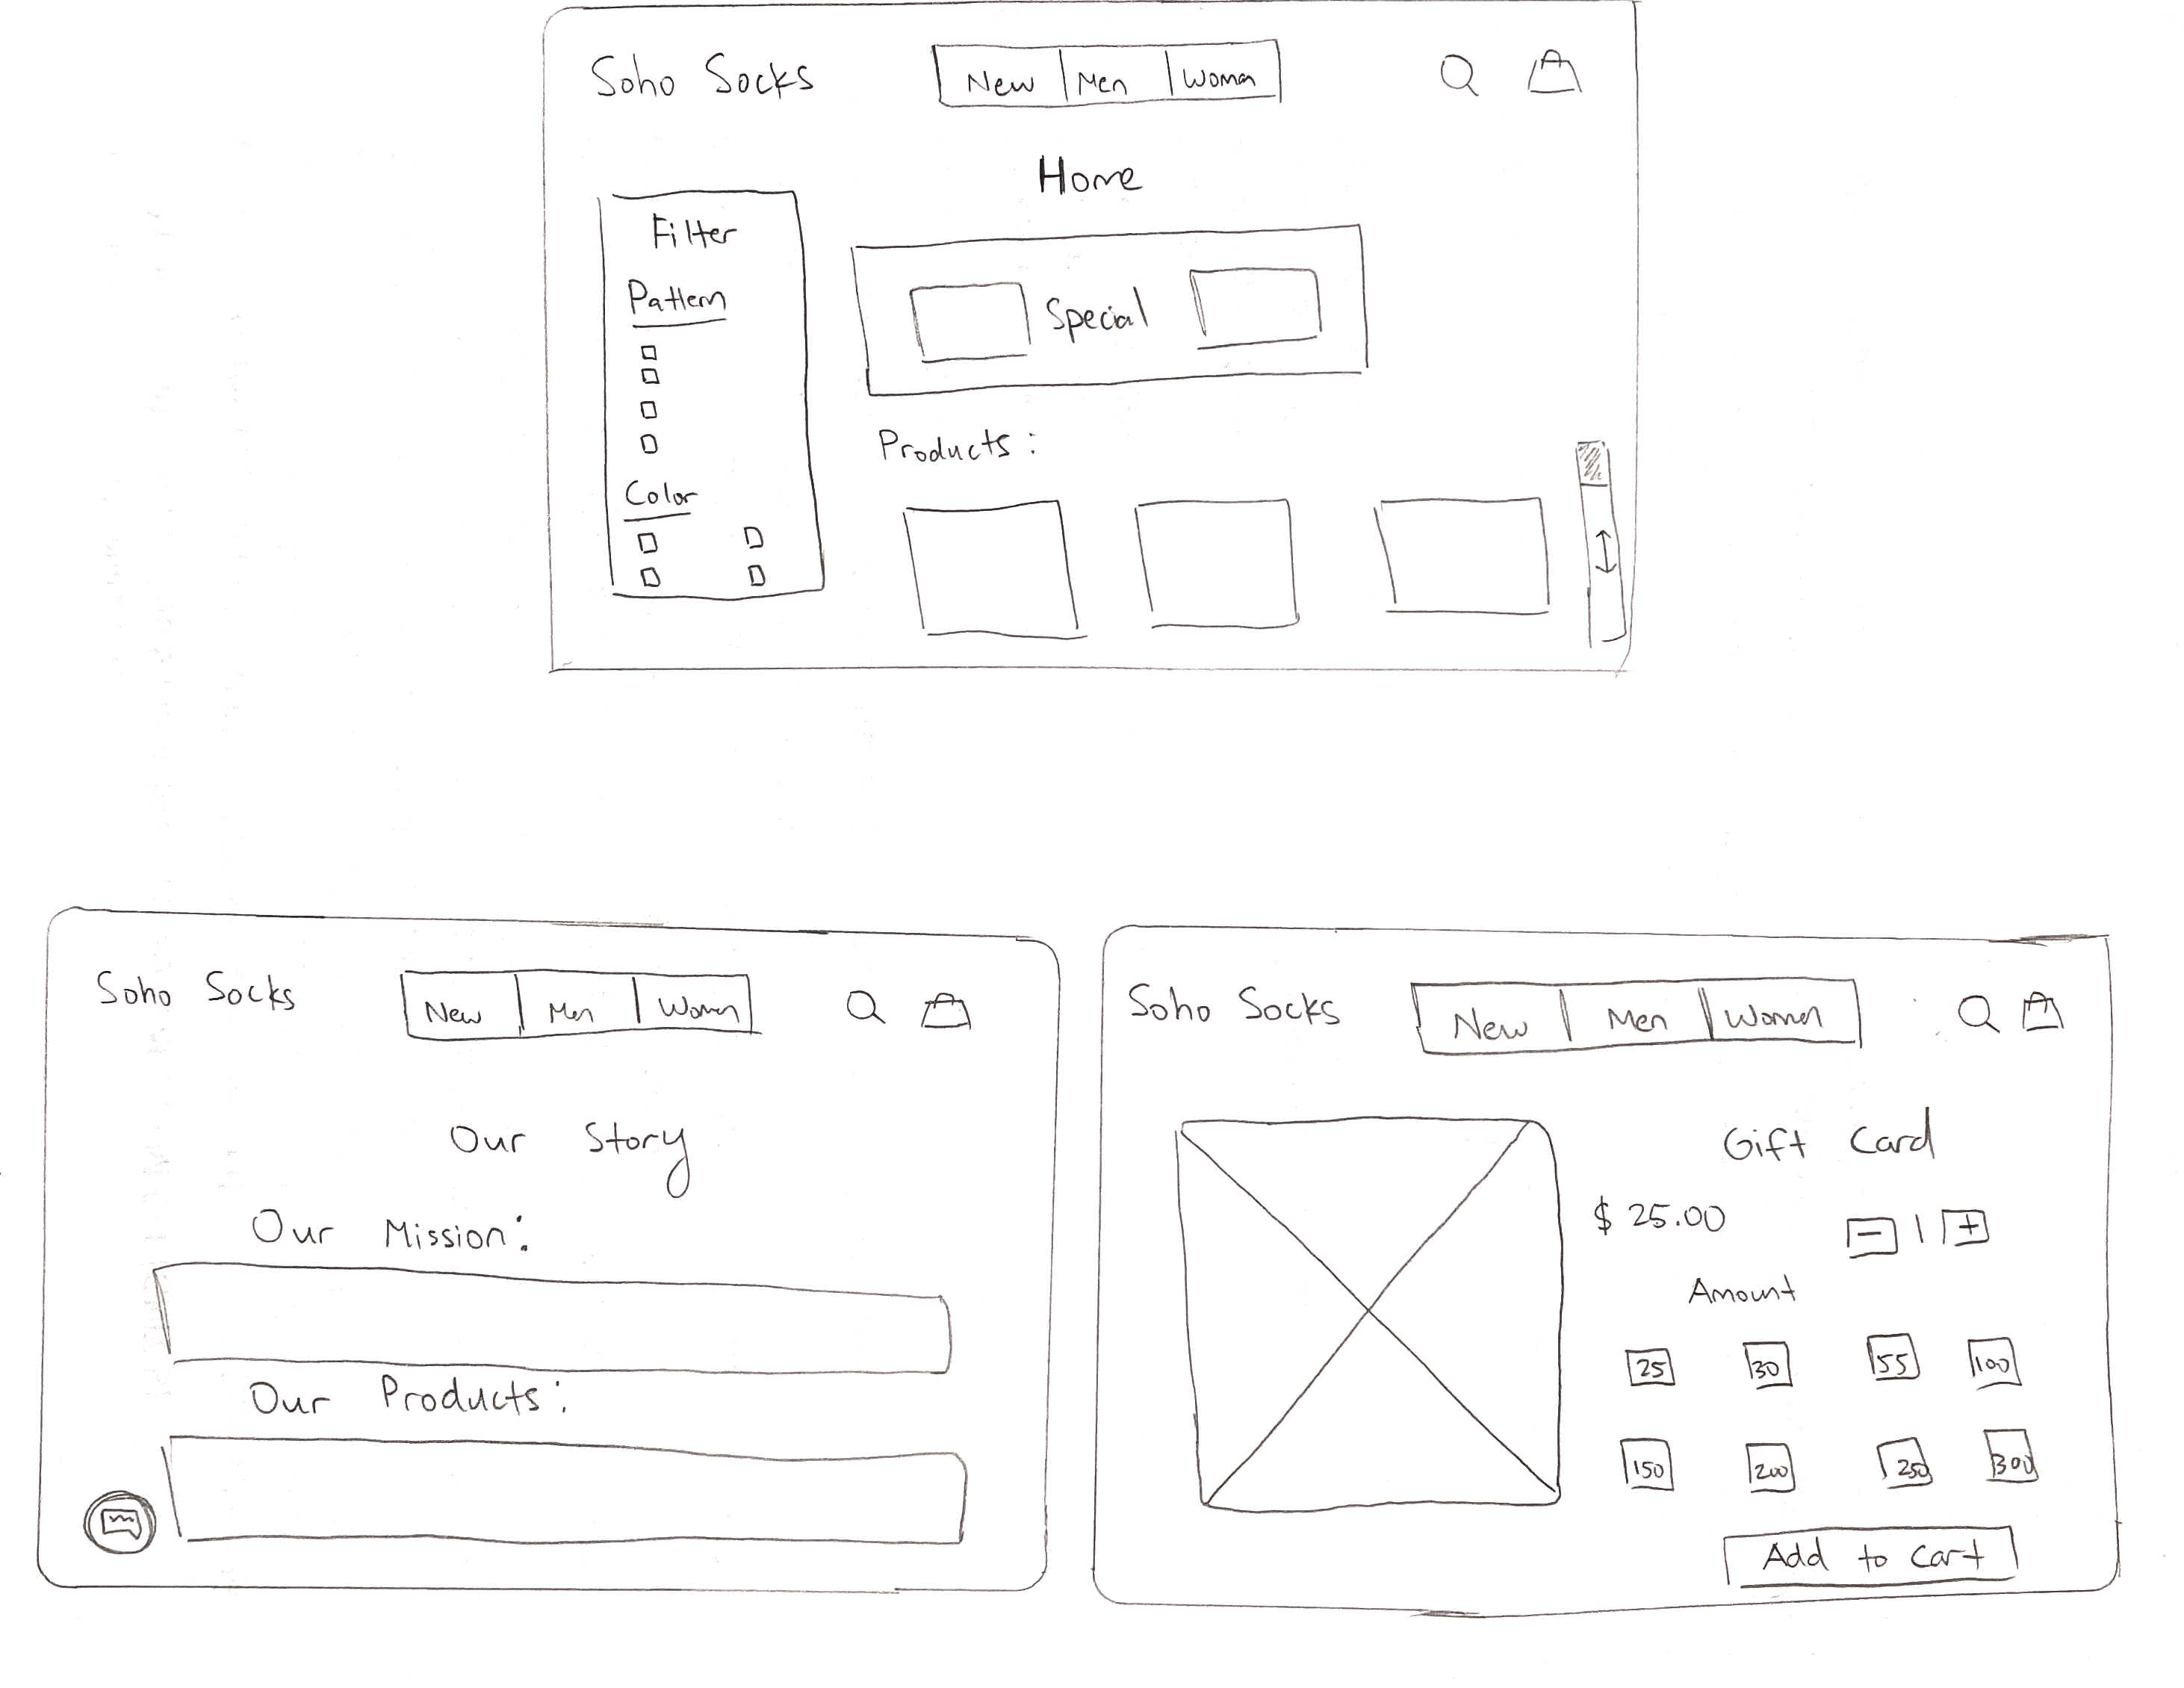 Soho Socks
New Men Woman
Home
Filter
Pattern
Special
Products:
Color
Soho Socks
New Men Women
Our Story
Our Mission:
Our Products:
Soho Socks
New Men Women
Gift Card
$ 25.00
- 1 +
Amount
25 30 55 100
150 200 250 300
Add to cart